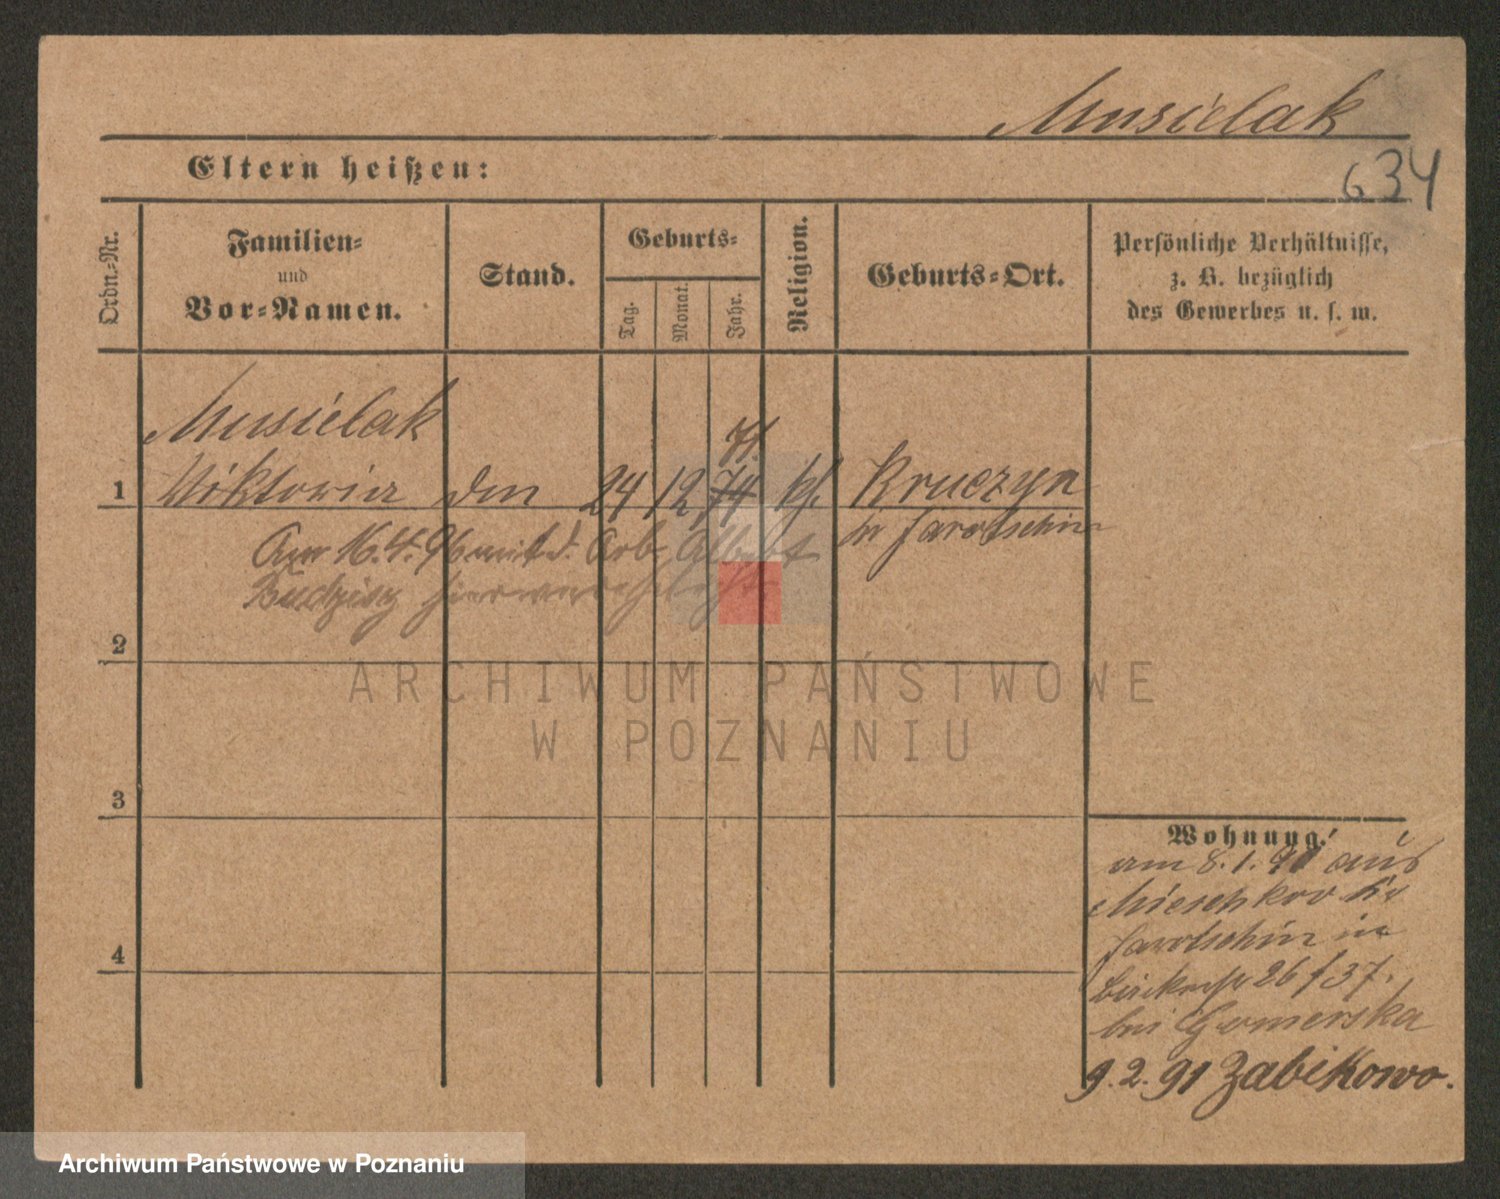 Musielak
Eltern heißen:
634
Ordn.-Nr.
Familien-
und
Vor-Namen.
Stand.
Geburts-
Tag.
Monat.
Jahr.
Religion.
Geburts-Ort.
Persönliche Verhältnisse,
z. B. bezüglich
des Gewerbes u. s. w.
Musielak
71.
1 Wiktoria den 24 12 74 kf. Kruczyn
in Jarotschin
Am 16.4.96 mit d. Arb.
Budzisz
2
ARCHIWUM PAŃSTWOWE
W POZNANIU
3
Wohnung:
am 8.1.91 aus
Mieschkow Kr
Jarotschin in
26 f 37.
bei Gomerska
9.2.91 Zabikowo.
4
Archiwum Państwowe w Poznaniu